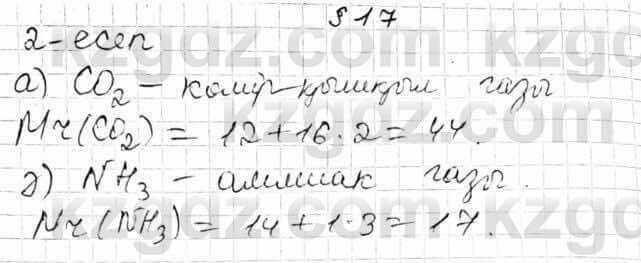 § 17
2-есеп
а) CO₂ – көмірқышқыл газы
Mr(CO₂) = 12 + 16 · 2 = 44.
ә) NH₃ – аммиак газы.
Mr(NH₃) = 14 + 1 · 3 = 17.
kzgdz.com